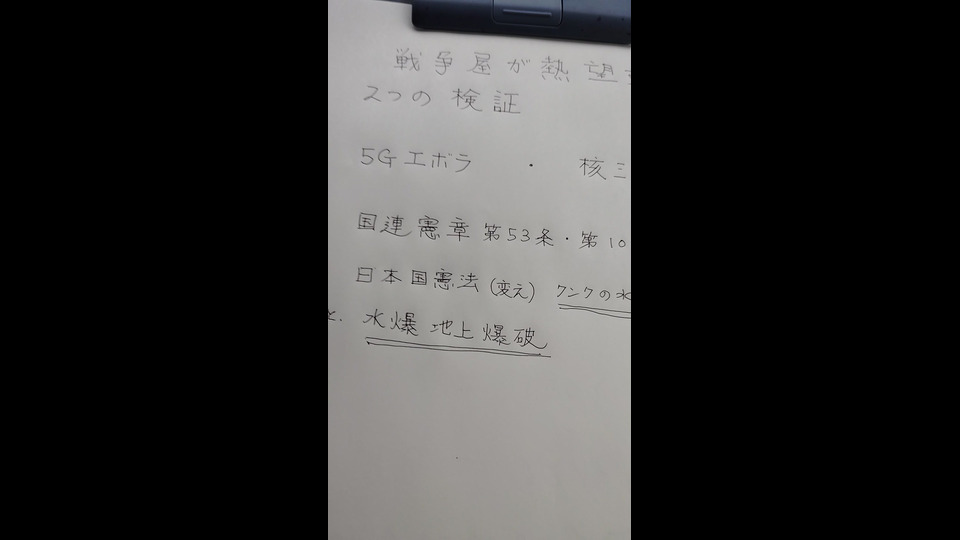 戦争屋が熱望
2つの検証
5Gエボラ ・ 核三
国連憲章 第53条・第10
日本国憲法(変え) クンクの水
と. 水爆 地上爆破